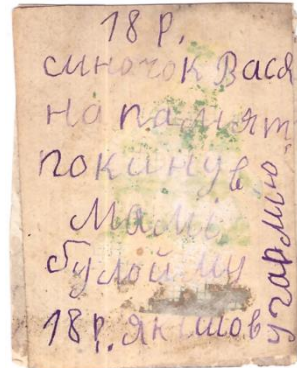 18 р.
синочок Вася
на памят
покинув
мамі
було йму
18 р. як ишов
у гармию